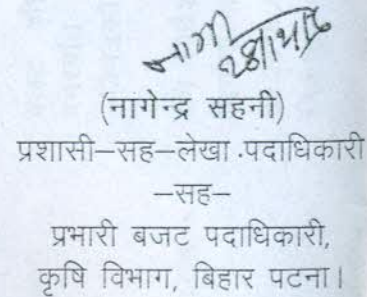 (नागेन्द्र सहनी)
प्रशासी–सह–लेखा .पदाधिकारी
–सह–
प्रभारी बजट पदाधिकारी,
कृषि विभाग, बिहार पटना।